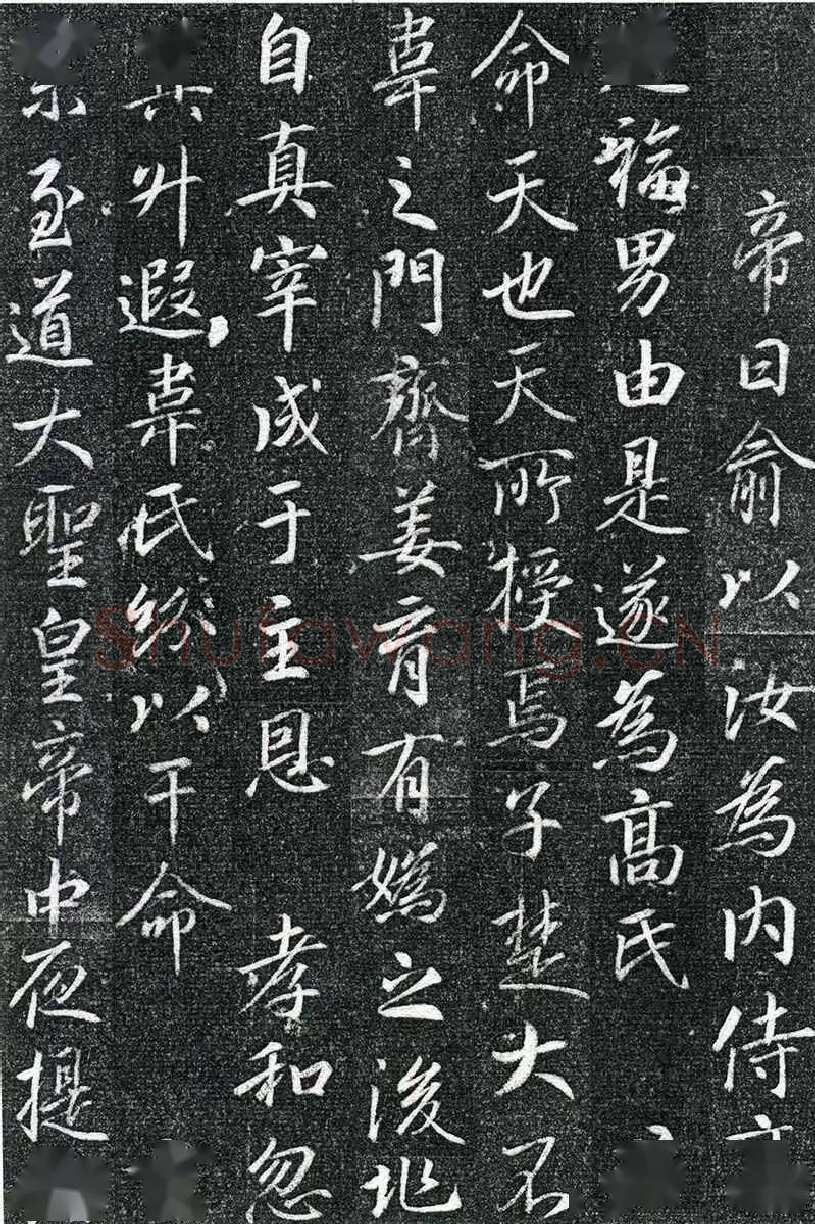 帝曰俞以汝為內侍
福男由是遂為高氏
命天也天所授焉子楚大不
韋之門齊姜育有媯之後非
自真宰成于主恩 孝和忽
升遐韋氏紛以干命
至道大聖皇帝中夜提
Shufawang.CN